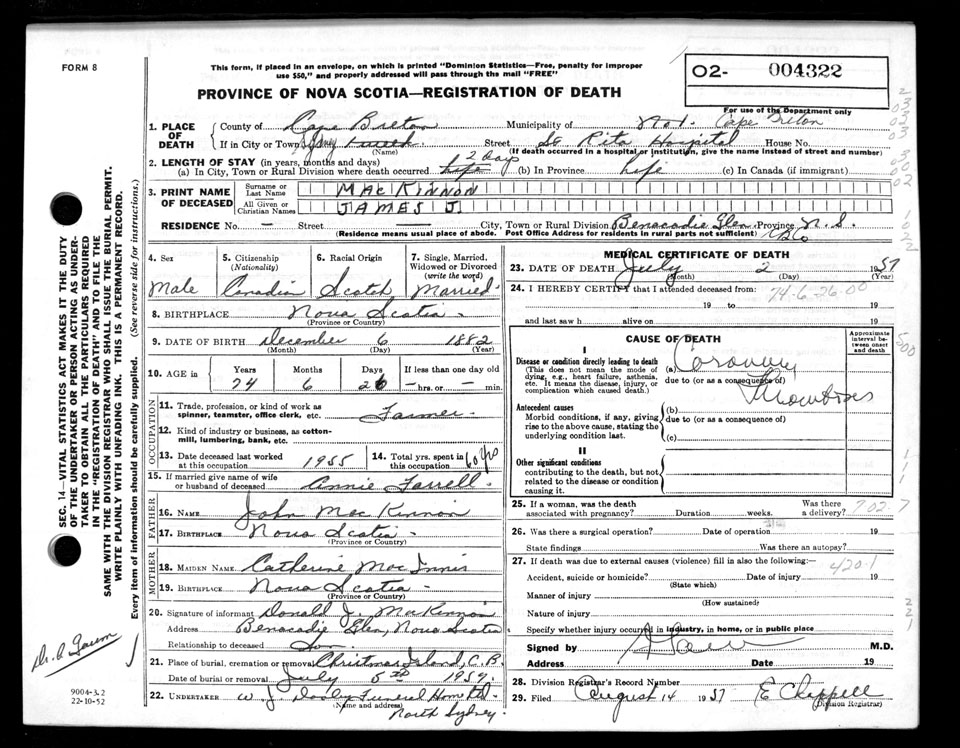 FORM 8
This form, if placed in an envelope, on which is printed "Dominion Statistics—Free, penalty for improper
use $50," and properly addressed will pass through the mail "FREE"
PROVINCE OF NOVA SCOTIA—REGISTRATION OF DEATH
02- 004322
For use of the Department only
1. PLACE OF DEATH
County of Cape Breton Municipality of No 1. Cape Breton
If in City or Town Sydney (Name) Street St Rita Hospital House No.
(If death occurred in a hospital or institution, give the name instead of street and number)
2. LENGTH OF STAY (in years, months and days)
(a) In City, Town or Rural Division where death occurred life 2 days (b) In Province life (c) In Canada (if immigrant)
3. PRINT NAME OF DECEASED
Surname or Last Name MAC KINNON
All Given or Christian Names JAMES J
RESIDENCE No. — Street — City, Town or Rural Division Benacadie Glen Province N.S.
(Residence means usual place of abode. Post Office Address for residents in rural parts not sufficient) CB Co
4. Sex Male
5. Citizenship (Nationality) Canadian
6. Racial Origin Scotch
7. Single, Married, Widowed or Divorced (write the word) Married
8. BIRTHPLACE Nova Scotia (Province or Country)
9. DATE OF BIRTH December (Month) 6 (Day) 1882 (Year)
10. AGE in Years 74 Months 6 Days 26 If less than one day old — hrs. or — min.
OCCUPATION
11. Trade, profession, or kind of work as spinner, teamster, office clerk, etc. Farmer
12. Kind of industry or business, as cotton-mill, lumbering, bank, etc.
13. Date deceased last worked at this occupation 1955
14. Total yrs. spent in this occupation 60 yrs
15. If married give name of wife or husband of deceased Annie Farrell
FATHER
16. NAME John Mac Kinnon
17. BIRTHPLACE Nova Scotia (Province or Country)
MOTHER
18. MAIDEN NAME Catherine Mac Innis
19. BIRTHPLACE Nova Scotia (Province or Country)
20. Signature of informant Donald J. MacKinnon
Address Benacadie Glen, Nova Scotia
Relationship to deceased Son
21. Place of burial, cremation or removal Christmas Island, C.B.
Date of burial or removal July 5th 1957.
22. UNDERTAKER W. J. Dooley Funeral Home Ltd.
(Name and address) North Sydney.
MEDICAL CERTIFICATE OF DEATH
23. DATE OF DEATH July (Month) 2 (Day) 1957 (Year)
24. I HEREBY CERTIFY that I attended deceased from: 74-6-26-00
19 to 19
and last saw h alive on 19
CAUSE OF DEATH
Approximate interval between onset and death
I
Disease or condition directly leading to death
(This does not mean the mode of dying, e.g., heart failure, asthenia, etc. It means the disease, injury, or complication which caused death.)
(a) Coronary
due to (or as a consequence of)
Thrombosis
Antecedent causes
Morbid conditions, if any, giving rise to the above cause, stating the underlying condition last.
(b)
due to (or as a consequence of)
(c)
II
Other significant conditions
contributing to the death, but not related to the disease or condition causing it.
25. If a woman, was the death associated with pregnancy? Duration weeks. Was there a delivery? 702.7
26. Was there a surgical operation? Date of operation 19
State findings Was there an autopsy?
27. If death was due to external causes (violence) fill in also the following:—
420.1
Accident, suicide or homicide? (State which) Date of injury 19
Manner of injury (How sustained)
Nature of injury
Specify whether injury occurred in industry, in home, or in public place
Signed by M.D.
Address Date 19
28. Division Registrar's Record Number
29. Filed August 14 1957 E Chappell
(Division Registrar)
SEC. 14—VITAL STATISTICS ACT MAKES IT THE DUTY
OF THE UNDERTAKER OR PERSON ACTING AS UNDER-
TAKER TO OBTAIN ALL THE PARTICULARS REQUIRED
IN THE "REGISTRATION OF DEATH" AND TO FILE THE
SAME WITH THE DIVISION REGISTRAR WHO SHALL ISSUE THE BURIAL PERMIT.
WRITE PLAINLY WITH UNFADING INK. THIS IS A PERMANENT RECORD.
Every item of information should be carefully supplied. (See reverse side for instructions.)
9004-3.2
22-10-52